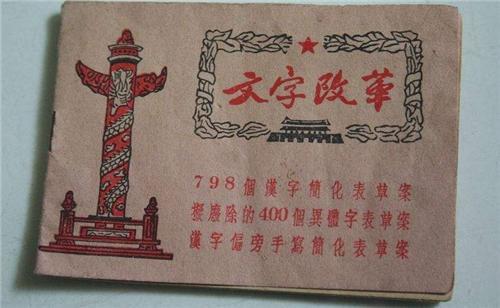 文字改革
798個漢字簡化表草案
擬廢除的400個異體字表草案
漢字偏旁手寫簡化表草案